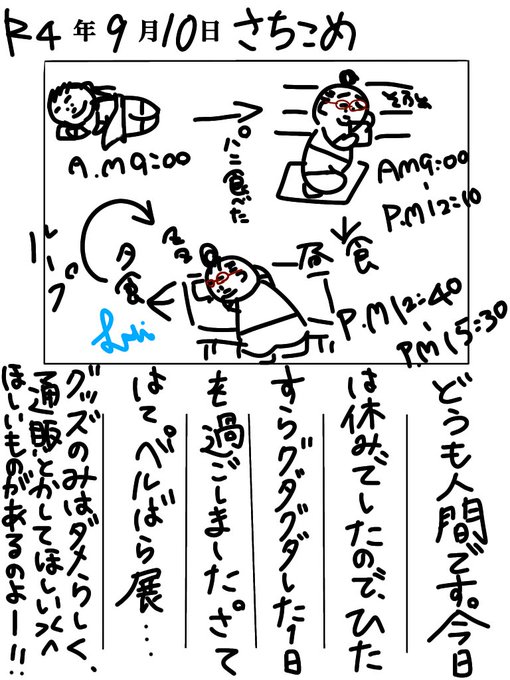 R4年9月10日 さちこめ
A.M9:00
パン食べた
そうよ
AM9:00
-
P.M12:10
昼食
P.M12:40
-
P.M15:30
夕食
ループ
どうも人間です。今日
は休みでしたので、ひた
すらグダグダした1日
も過ごしました。さて
はて ベルばら展…
グッズのみはダメらしく、
通販とかしてほしい<<
ほしいものがあるのよー!!